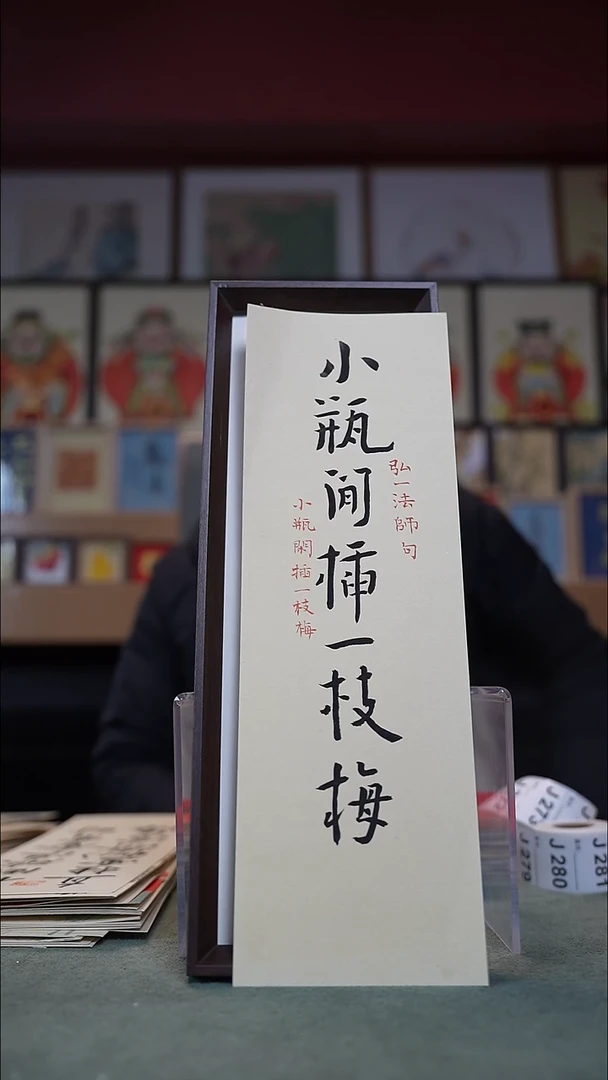 弘一法師句
小瓶閒插一枝梅
小瓶閑插一枝梅
J 279
J 280
J 281